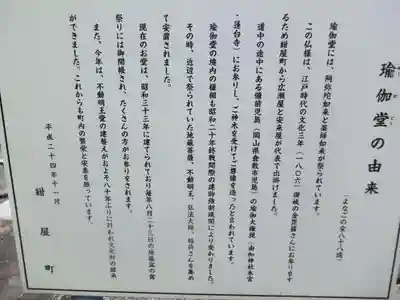 瑜伽堂の由来
瑜伽堂には、阿弥陀如来と薬師如来が祭られています。
この仏様は、江戸時代の文化三年(一八〇六)讃岐の金毘羅さんにお参りす
るため紺屋町から広瀬屋と安来屋が代表で出掛けました。
道中の途中にある備前児島(岡山県倉敷市児島)の瑜伽大権現(由加神社本宮
・蓮台寺)にお参りし、ご神木を受けてご尊像を造ったと言われています。
瑜伽堂の境内の様相も昭和二十年終戦間際の建物強制疎開により変わりました。
その時、近辺で祭られていた地蔵菩薩、不動明王、弘法大師、稲荷さんを集め
て安置されました。
現在のお堂は、昭和三十三年に建てられており毎年八月二十三日の地蔵盆の宵
祭りには御開帳され、たくさんの方がお参りをされます。
また、今年は、不動明王堂の建替えがおよそ八十年ぶりに行われ文化財の継承
ができました。これからも町内の繁栄と安泰を願っています。
平成二十四年十一月
紺屋町